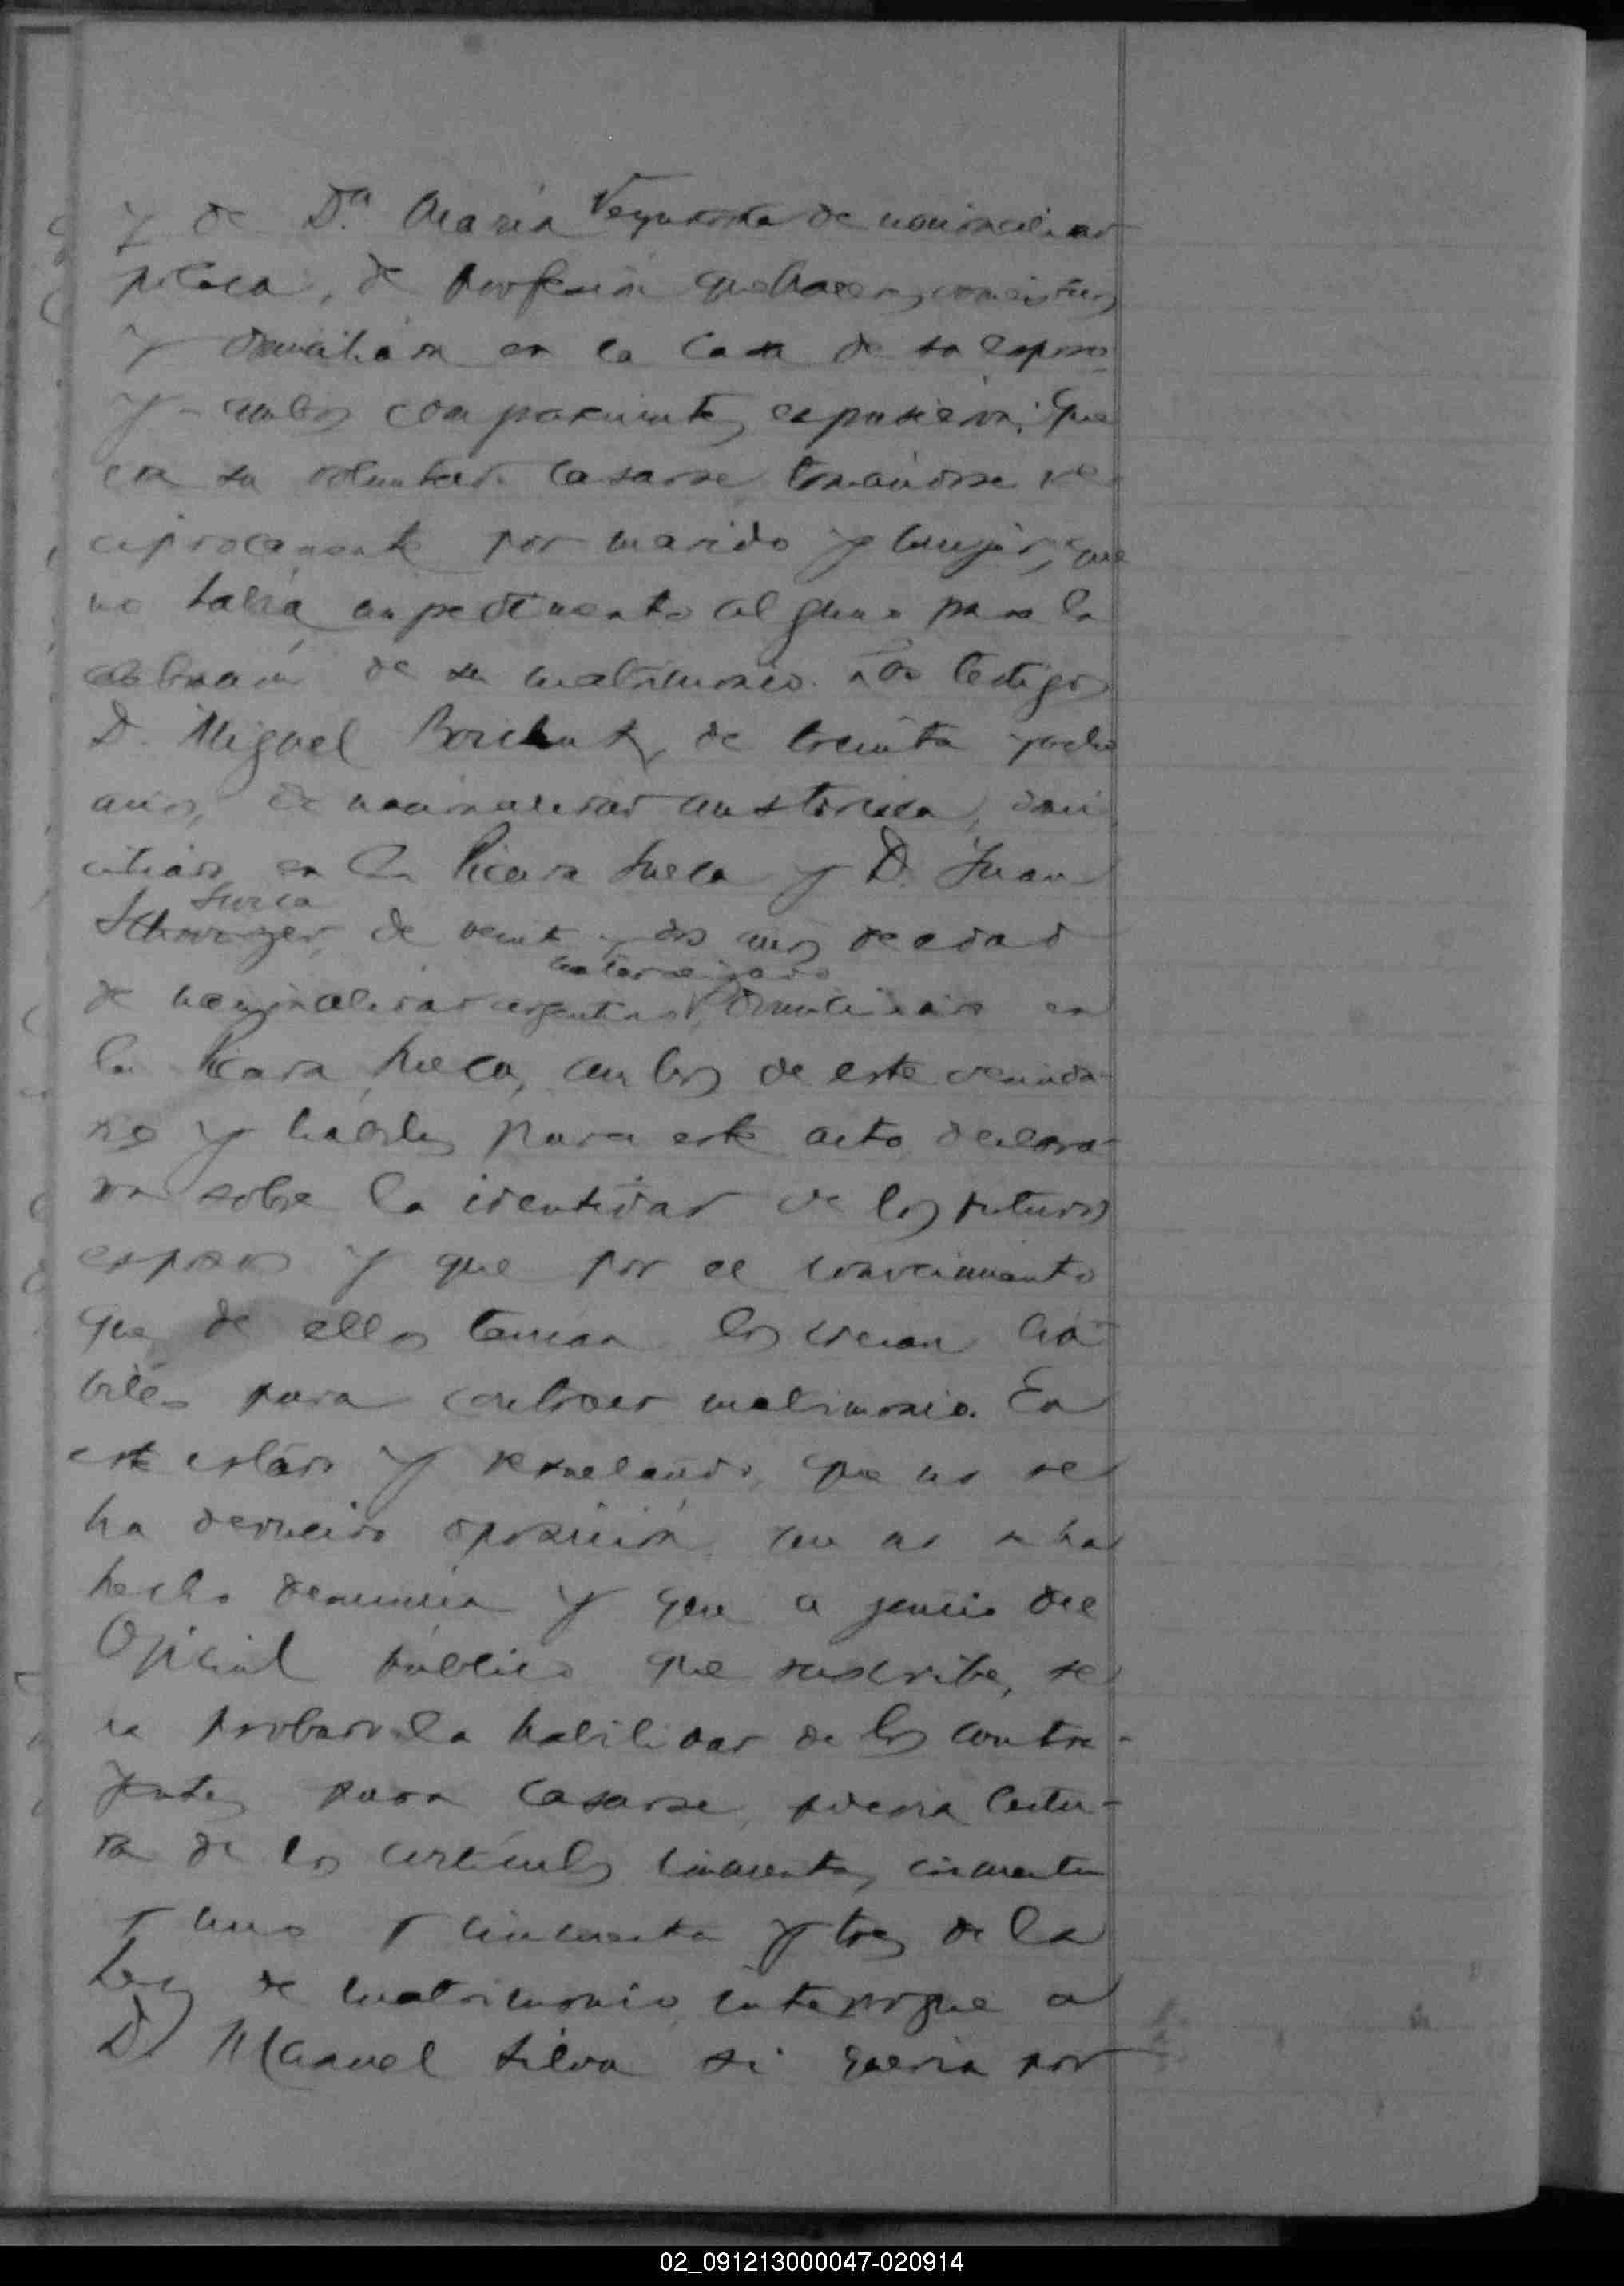 y de Dª María de nacionalidad
polaca, de profesión quehaceres domésticos
y domiciliada en la casa de su esposo
y ambos comparecientes expusieron: Que
era su voluntad casarse tomándose re-
ciprocamente por marido y mujer, que
no había impedimento alguno para la
celebración de su matrimonio. Los testigos
D. Miguel de treinta y ocho
años, de nacionalidad austriaca, domi
ciliado en la Picara Sueca y D. Juan
Sueca
de veinte y dos años de edad
naturalizado
de nacionalidad argentino domiciliado en
la Picara Sueca, ambos de este vecinda-
rio y hábiles para este acto, declara-
ron sobre la identidad de los futuros
esposos y que por el conocimiento
que de ellos tenían los creían há-
biles para contraer matrimonio. En
este estado y resultando, que no se
ha deducido oposición que no se ha
hecho denuncia y que a juicio del
Oficial público que suscribe, se
ha probado la habilidad de los contra-
yentes para casarse, previa lectu-
ra de los artículos cincuenta, cincuenta
y uno y cincuenta y tres de la
Ley de matrimonio, interrogué a
D. Manuel Silva si quería por
02_091213000047-020914